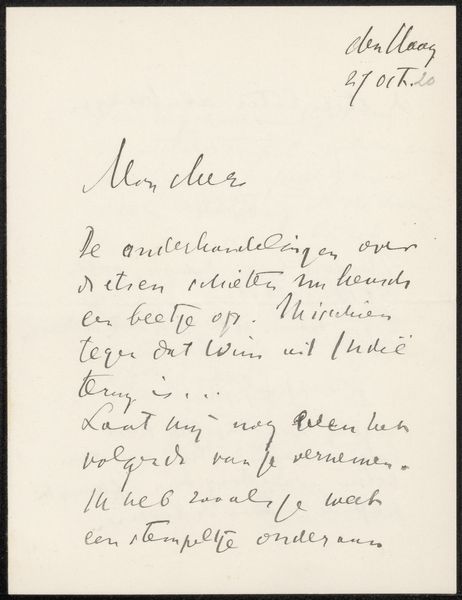 den Haag
27 oct. 20
Mon cher
De onderhandelingen over
dietsen schieten nu heusch
een beetje op. Misschien
tegen dat Wim uit Indië
terug is...
Laat mij nog even het
volgende van je vernemen.
Ik heb zooals je weet
een stempeltje onderaan